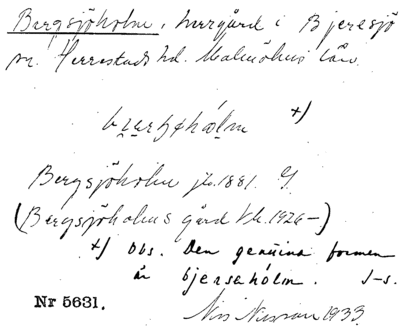 Bergsjöholm, herrgård i Bjeresjö
sn. Herrestads hd. Malmöhus län.
+)
Bergsjöholm jb. 1881.
(Bergsjöholms gård 1926-)
+) Obs. Den genuina formen
är bjersahólm. J-s.
Nr 5631.
Nils Nilsson 1933.